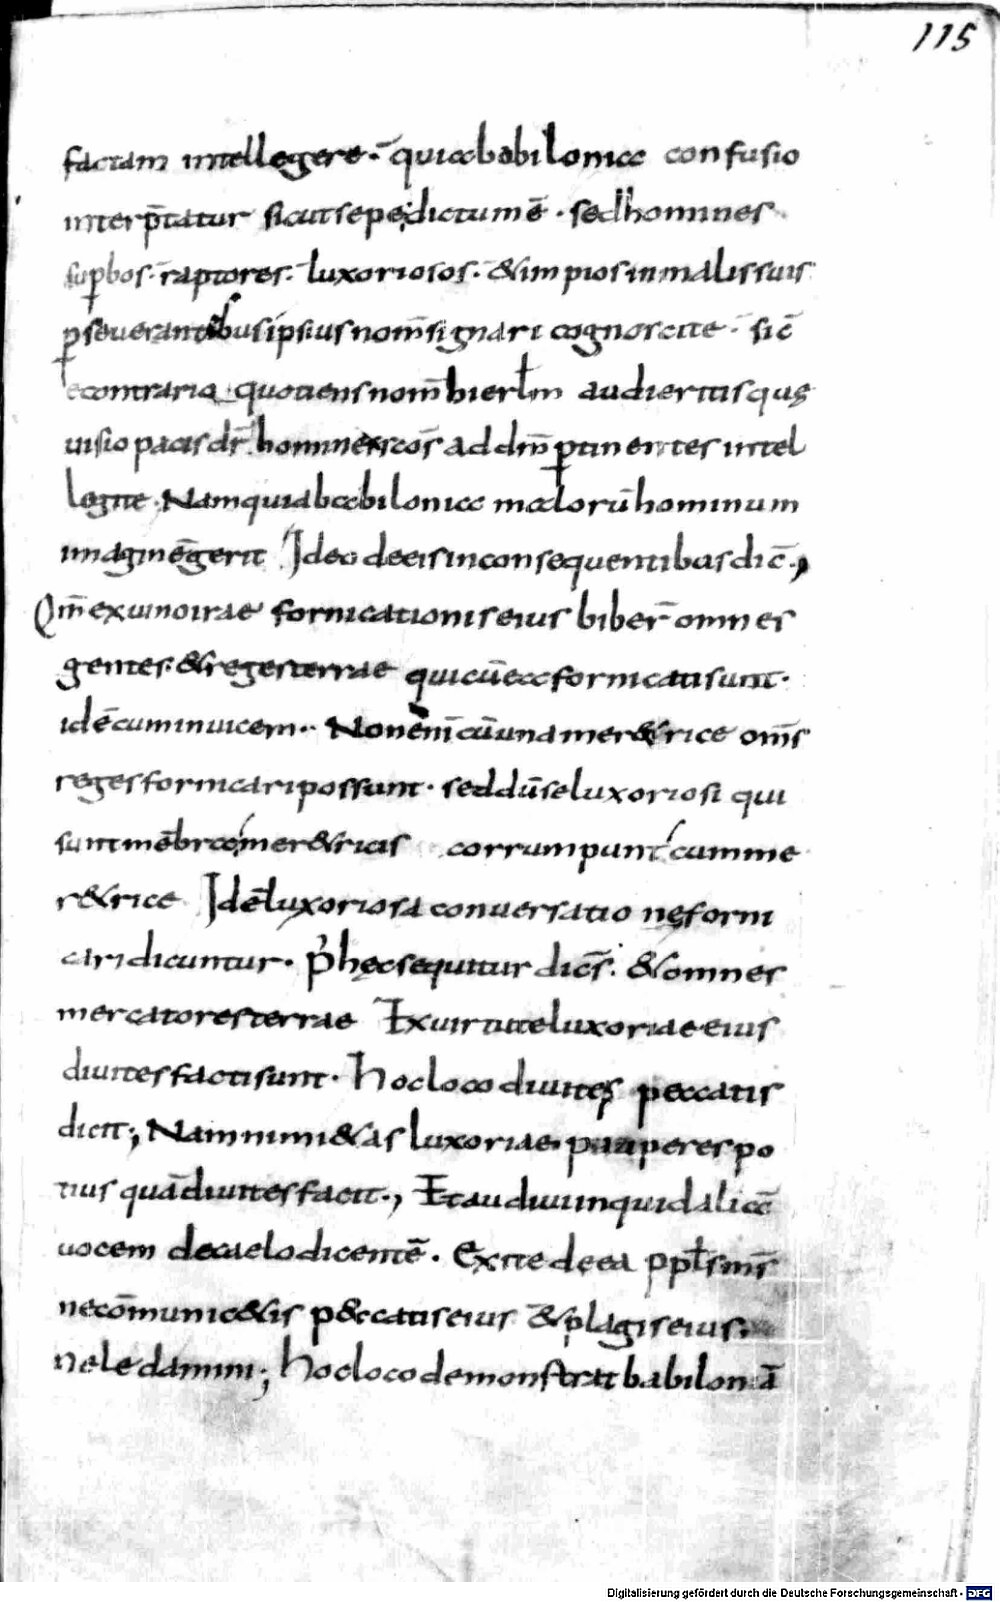 115
factam intellegere · quia babilonia confusio
interp̄tatur sicut sepe dictum ē · sed homines
sup̱bos · raptores · luxoriosos · & impios in malis suis
p̱seuerantibus ipsius nom̄ signari cognoscite · sic̄
econtrario quotiens nom̄ hierłm audieritis quę
uisio pacis dr̄ homines sc̄os ad dm̄ p̱tinentes intel
legite · Nam quia babilonia malorū hominum
imaginē gerit Ideo de eis in consequentibus dic̄ ·,
Qm̄ ex uino irae fornicationis eius biber̄ omnes
gentes · & reges terrae qui cū ea fornicati sunt ·
id ē cum inuicem · Non enī cū una mer&rice om̄s
reges fornicari possunt · sed dū se luxoriosi qui
sunt mēbra mer&ricis corrumpunt cum me
r&rice Id ē luxoriosa conuersatione forni
cari dicuntur · P' hęc sequitur dic̄s · & omnes
mercatores terrae Ex uirtute luxoriae eius
diuites facti sunt · Hoc loco diuites peccatis
dicit ; Nam nimi&as luxoriae pauperes po
tius quā diuites facit ·, Et audiui inquid aliā
uocem de caelo dicentē · Exite de ea ppłs ms̄
ne cōmunic&is peccatis eius & plagis eius ·
ne ledamini ; Hoc loco demonstrat babiloniā
Digitalisierung gefördert durch die Deutsche Forschungsgemeinschaft - DFG